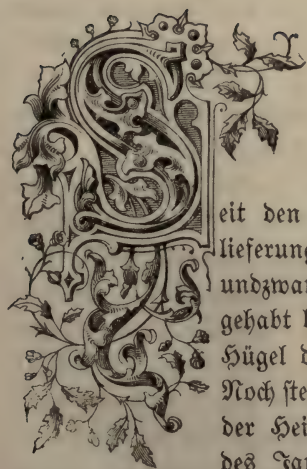 Seit den
lieferung
undzwan
gehabt
Hügel d
Noch ste
der Hei
des